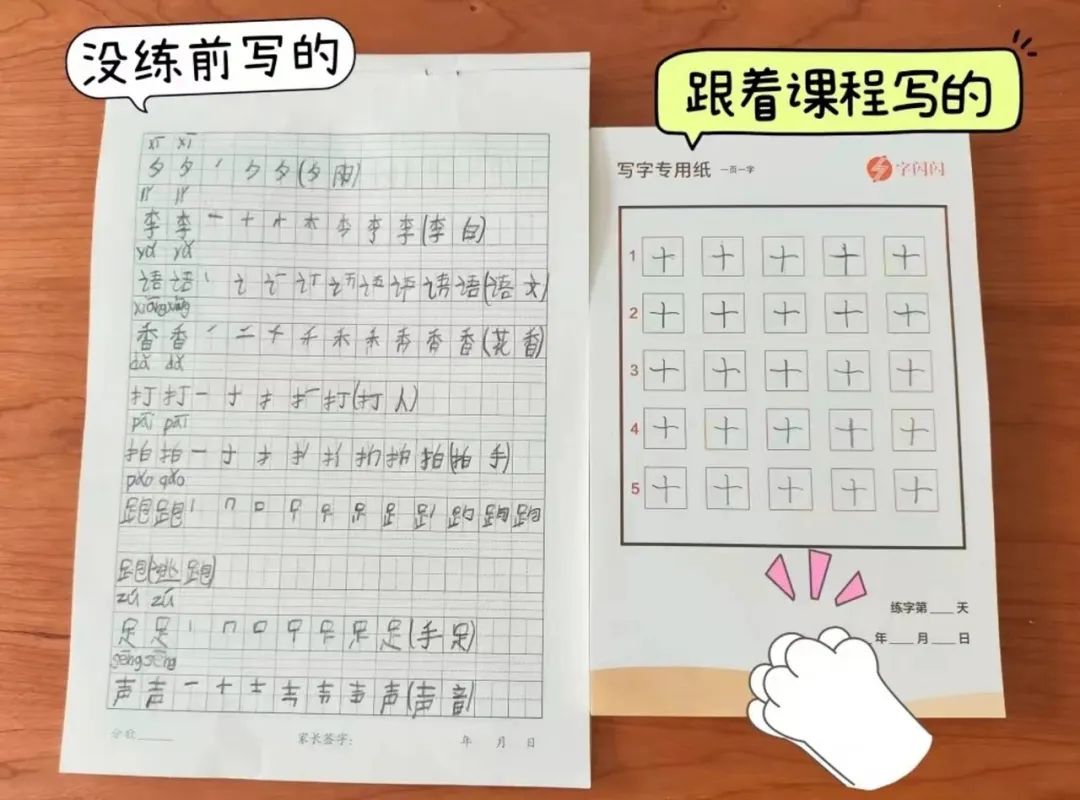 没练前写的
xī xī
夕夕丿 夕夕(夕阳)
李李一十才木李李李(李白)
语语丶讠语语(语文)
xiāng xiāng
香香丿二千禾禾禾香香香(花香)
dǎ dǎ
打打一十扌打打(打人)
pāi pāi
拍拍一十扌拍拍(拍手)
跑跑丨𠃍口
跑(逃跑)
zú zú
足足丨𠃍口 足足(手足)
sēng sēng
声声一十士 声(声音)
分数____
家长签字:
年 月 日
跟着课程写的
写字专用纸 一页一字
字闪闪
1 十 十 十 十 十
2 十 十 十 十 十
3 十 十 十 十 十
4 十 十 十 十 十
5 十 十 十 十 十
练字第____天
年____月____日